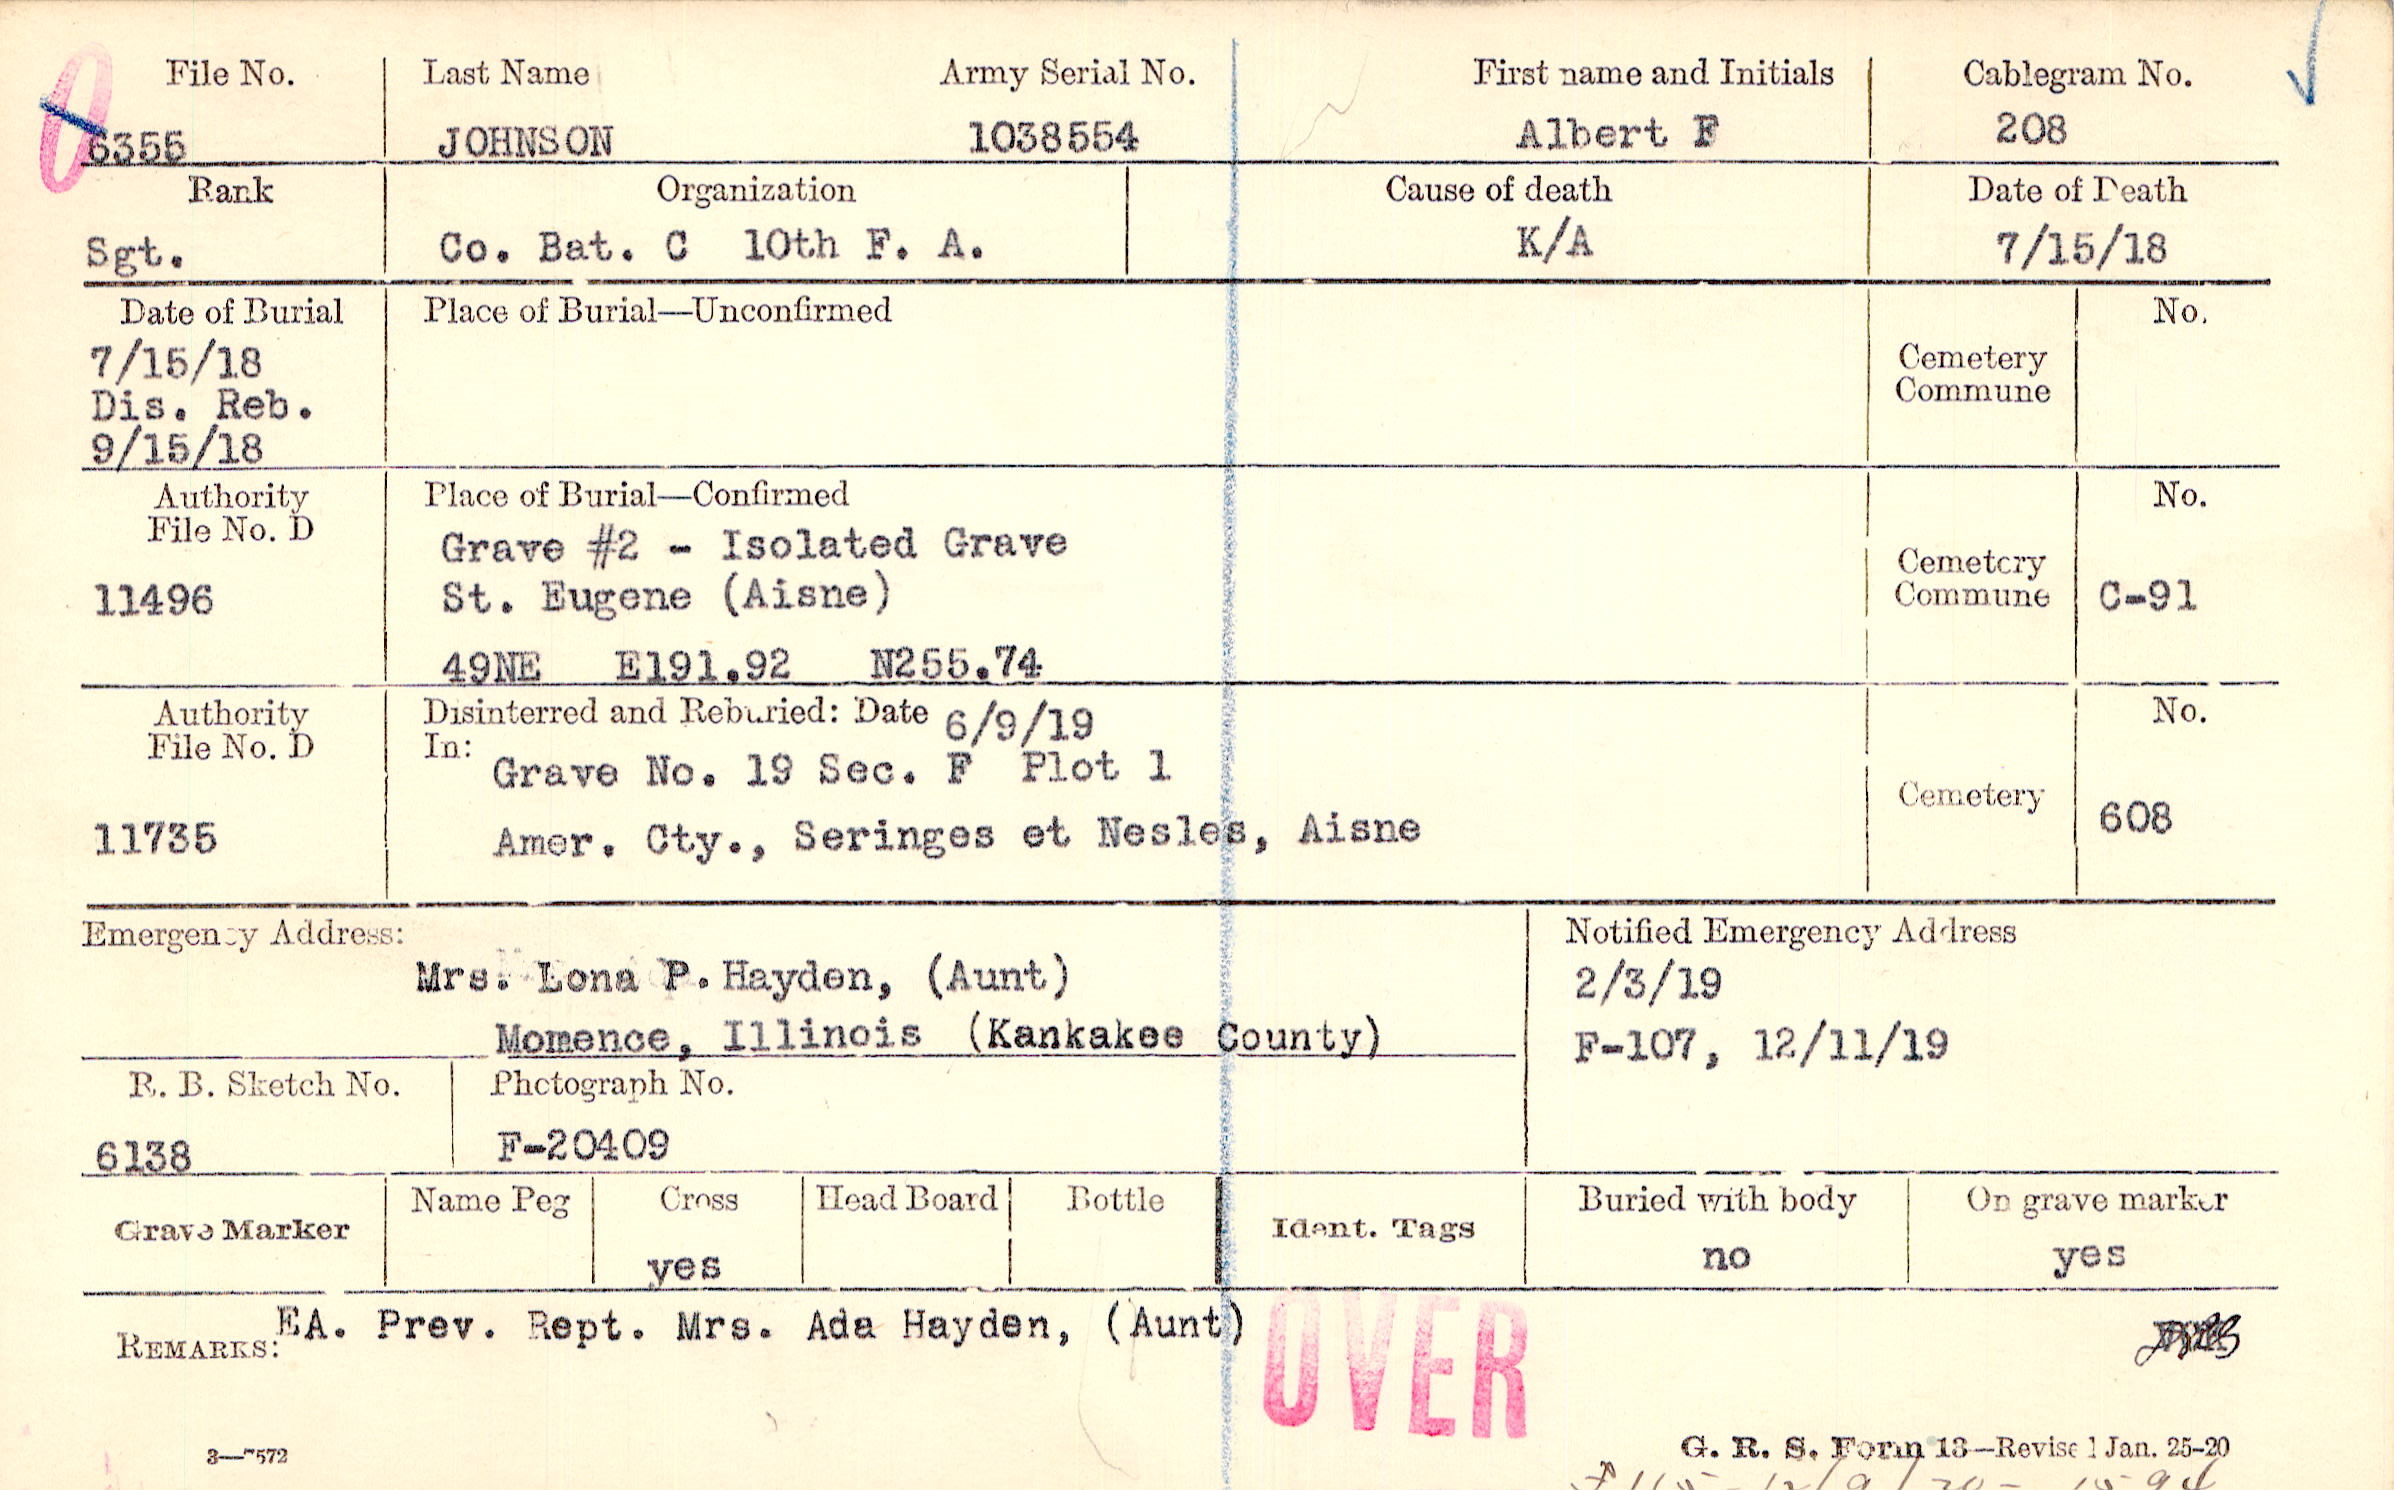 File No. Last Name Army Serial No. First name and Initials Cablegram No.
6355 JOHNSON 1038554 Albert F 208
Rank Organization Cause of death Date of Death
Sgt. Co. Bat. C 10th F. A. K/A 7/15/18
Date of Burial Place of Burial—Unconfirmed No.
7/15/18
Dis. Reb.
9/15/18
Cemetery
Commune
Authority Place of Burial—Confirmed No.
File No. D
Grave #2 - Isolated Grave
11496 St. Eugene (Aisne)
Cemetery
Commune C-91
49NE E191.92 N255.74
Authority Disinterred and Reburied: Date 6/9/19 No.
File No. D In:
Grave No. 19 Sec. F Plot 1
Cemetery 608
11735 Amer. Cty., Seringes et Nesles, Aisne
Emergency Address: Notified Emergency Address
Mrs. Lona P. Hayden, (Aunt) 2/3/19
Momence, Illinois (Kankakee County) F-107, 12/11/19
R. B. Sketch No. Photograph No.
6138 F-20409
Name Peg Cross Head Board Bottle Buried with body On grave marker
Grave Marker Ident. Tags
yes no yes
EA. Prev. Rept. Mrs. Ada Hayden, (Aunt)
REMARKS:
OVER
3—7572 G. R. S. Form 13—Revised Jan. 25-20